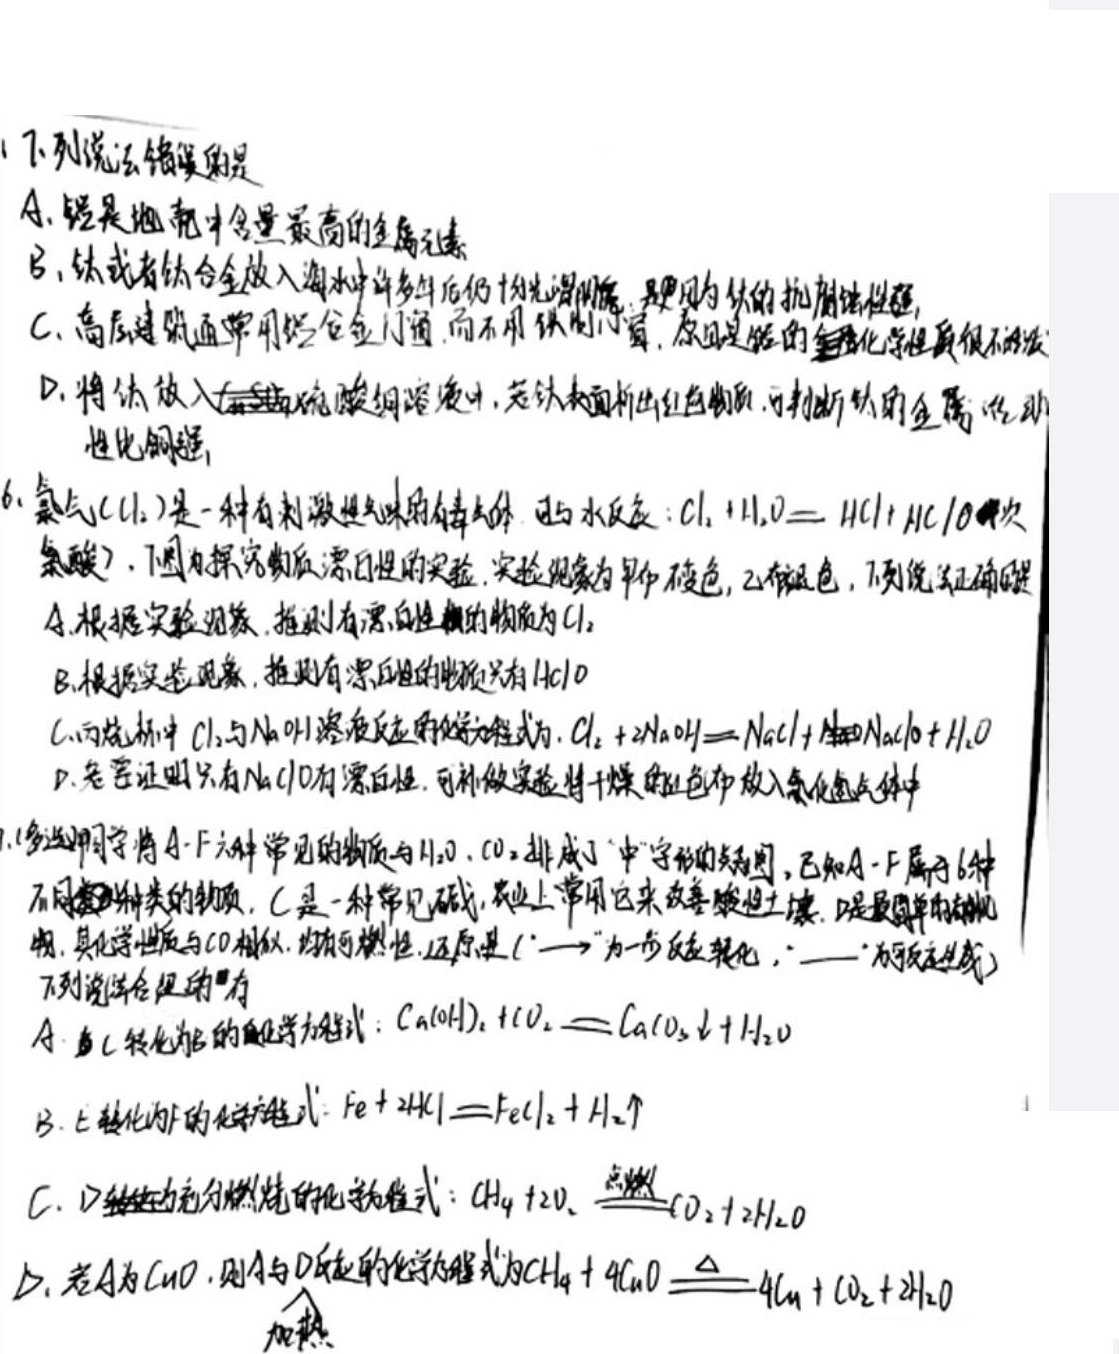 1 下列说法错误的是
A、铝是地壳中含量最高的金属元素
B、钛或者钛合金放入海水中许多年后仍十分光滑明亮,是因为钛的抗腐蚀性强,
C、高层建筑通常用铝合金门窗,而不用铁制门窗,原因是铝的化学性质很不活泼
D、将钛放入硫酸铜溶液中,若钛表面析出红色物质,可判断钛的金属活动
性比铜强,
6、氯气(Cl₂)是一种有刺激性气味的有毒气体,可与水反应:Cl₂+H₂O═HCl+HClO(次
氯酸),下图为探究物质漂白性的实验,实验现象为甲布不变色,乙布褪色,下列说法正确的是
A、根据实验现象,推测有漂白性的物质为Cl₂
B、根据实验现象,推测有漂白性的物质只有HClO
C、丙烧杯中Cl₂与NaOH溶液反应的化学方程式为,Cl₂+2NaOH═NaCl+NaClO+H₂O
D、若要证明只有NaClO有漂白性,可补做实验将干燥的红色布放入氯化氢气体中
7、(多选)某同学将A-F六种常见的物质与H₂O、CO₂排成了“中”字形的关系图,已知A-F属于6种
不同种类的物质,C是一种常见碱,农业上常用它来改善酸性土壤,D是最简单的有机
物,其化学性质与CO相似,均有可燃性,还原性(“→”为一步反应转化,“—”为可反应生成)
下列说法合理的有
A、C转化为B的化学方程式:Ca(OH)₂+CO₂═CaCO₃↓+H₂O
B、E转化为F的化学方程式:Fe+2HCl═FeCl₂+H₂↑
C、D充分燃烧的化学方程式:CH₄+2O₂ 点燃═ CO₂+2H₂O
D、若A为CuO,则A与D反应的化学方程式为CH₄+4CuO △═ 4Cu+CO₂+2H₂O
加热